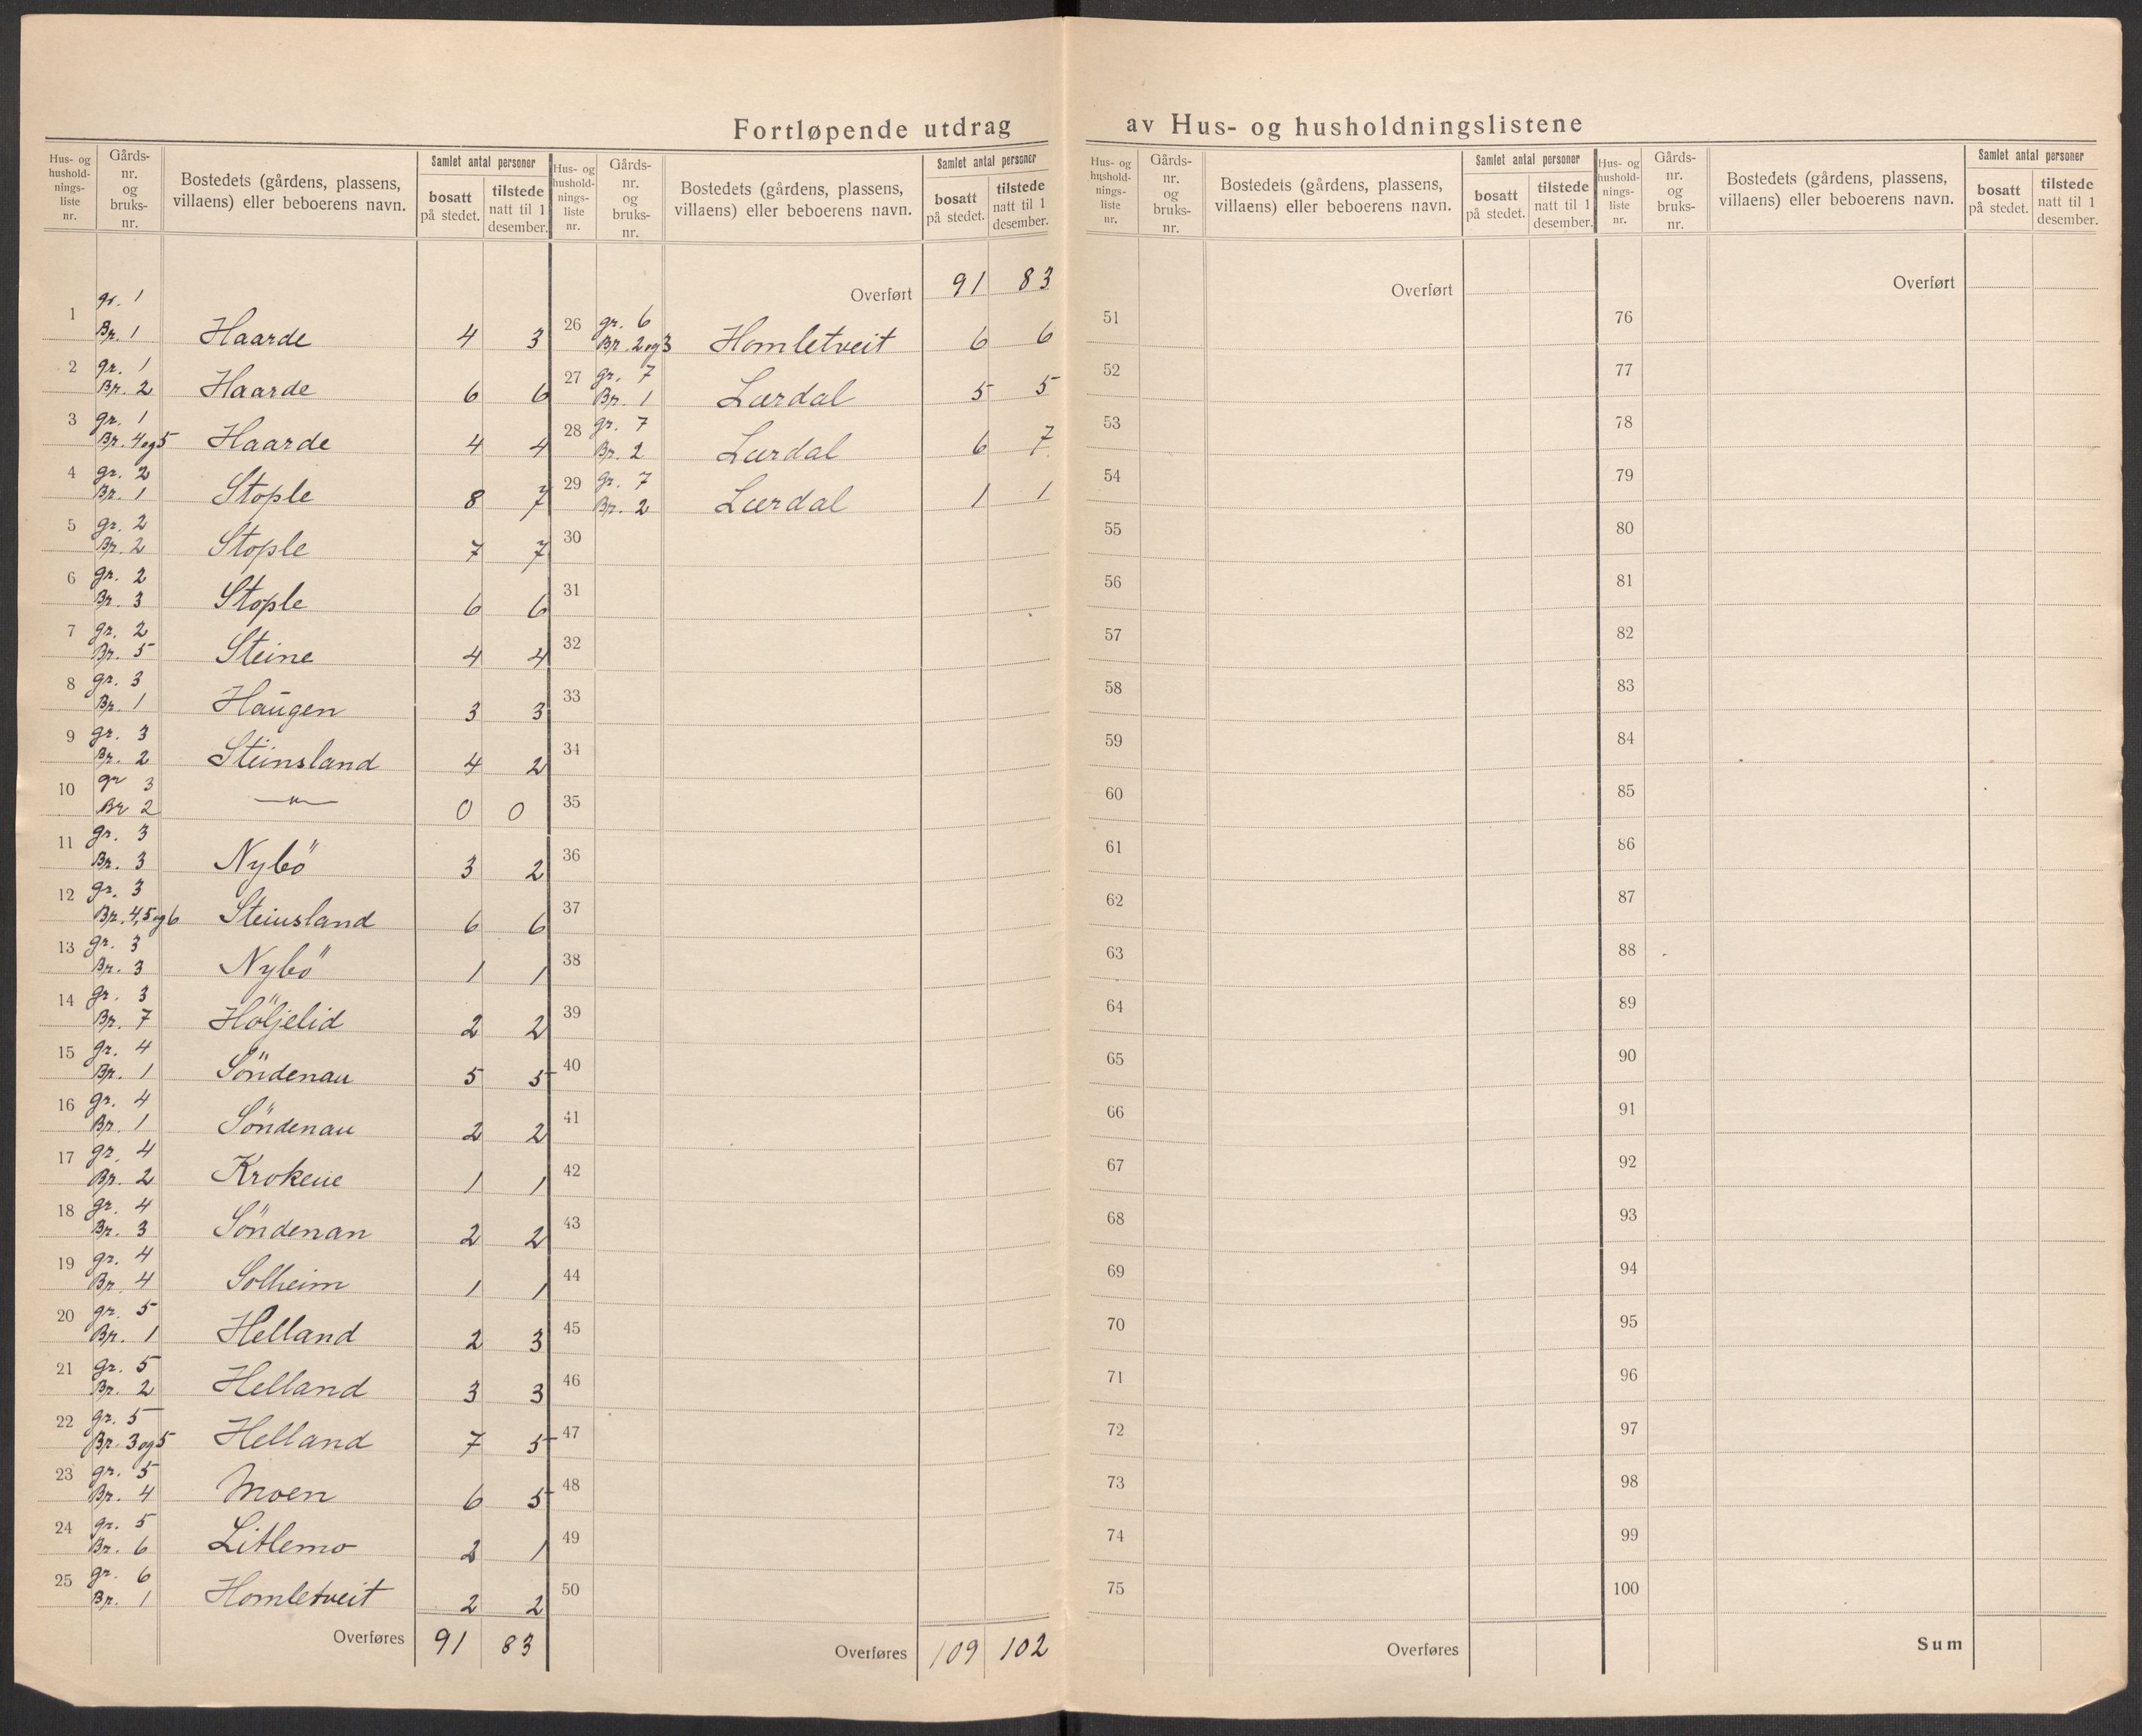 Fortløpende utdrag av Hus- og husholdningslistene
Hus- og hushold- nings- liste nr. | Gårds- nr. og bruks- nr. | Bostedets (gårdens, plassens, villaens) eller beboerens navn. | Samlet antal personer | bosatt på stedet. | tilstede natt til 1 desember.
1 gr. 1 Br. 1 Haarde 4 3
2 gr. 1 Br. 2 Haarde 6 6
3 gr. 1 Br. 4 og 5 Haarde 4 4
4 gr. 2 Br. 1 Stople 8 7
5 gr. 2 Br. 2 Stople 7 7
6 gr. 2 Br. 3 Stople 6 6
7 gr. 2 Br. 5 Steine 4 4
8 gr. 3 Br. 1 Haugen 3 3
9 gr. 3 Br. 2 Steinsland 4 2
10 gr 3 Br 2 —"— 0 0
11 gr. 3 Br. 3 Nybö 3 2
12 gr. 3 Br. 4, 5 og 6 Steinsland 6 6
13 gr. 3 Br. 3 Nybö 1 1
14 gr. 3 Br. 7 Höljelid 2 2
15 gr. 4 Br. 1 Söndenau 5 5
16 gr. 4 Br. 1 Söndenau 2 2
17 gr. 4 Br. 2 Krokene 1 1
18 gr. 4 Br. 3 Söndenau 2 2
19 gr. 4 Br. 4 Solheim 1 1
20 gr. 5 Br. 1 Helland 2 3
21 gr. 5 Br. 2 Helland 3 3
22 gr. 5 Br. 3 og 5 Helland 7 5
23 gr. 5 Br. 4 Moen 6 5
24 gr. 5 Br. 6 Litlemo 2 1
25 gr. 6 Br. 1 Homletveit 2 2
Overføres 91 83
Hus- og hushold- nings- liste nr. | Gårds- nr. og bruks- nr. | Bostedets (gårdens, plassens, villaens) eller beboerens navn. | Samlet antal personer | bosatt på stedet. | tilstede natt til 1 desember.
Overført 91 83
26 gr. 6 Br. 2 og 3 Homletveit 6 6
27 gr. 7 Br. 1 Lærdal 5 5
28 gr. 7 Br. 2 Lærdal 6 7
29 gr. 7 Br. 2 Lærdal 1 1
30
31
32
33
34
35
36
37
38
39
40
41
42
43
44
45
46
47
48
49
50
Overføres 109 102
Hus- og hushold- nings- liste nr. | Gårds- nr. og bruks- nr. | Bostedets (gårdens, plassens, villaens) eller beboerens navn. | Samlet antal personer | bosatt på stedet. | tilstede natt til 1 desember.
Overført
51
52
53
54
55
56
57
58
59
60
61
62
63
64
65
66
67
68
69
70
71
72
73
74
75
Overføres
Hus- og hushold- nings- liste nr. | Gårds- nr. og bruks- nr. | Bostedets (gårdens, plassens, villaens) eller beboerens navn. | Samlet antal personer | bosatt på stedet. | tilstede natt til 1 desember.
Overført
76
77
78
79
80
81
82
83
84
85
86
87
88
89
90
91
92
93
94
95
96
97
98
99
100
Sum